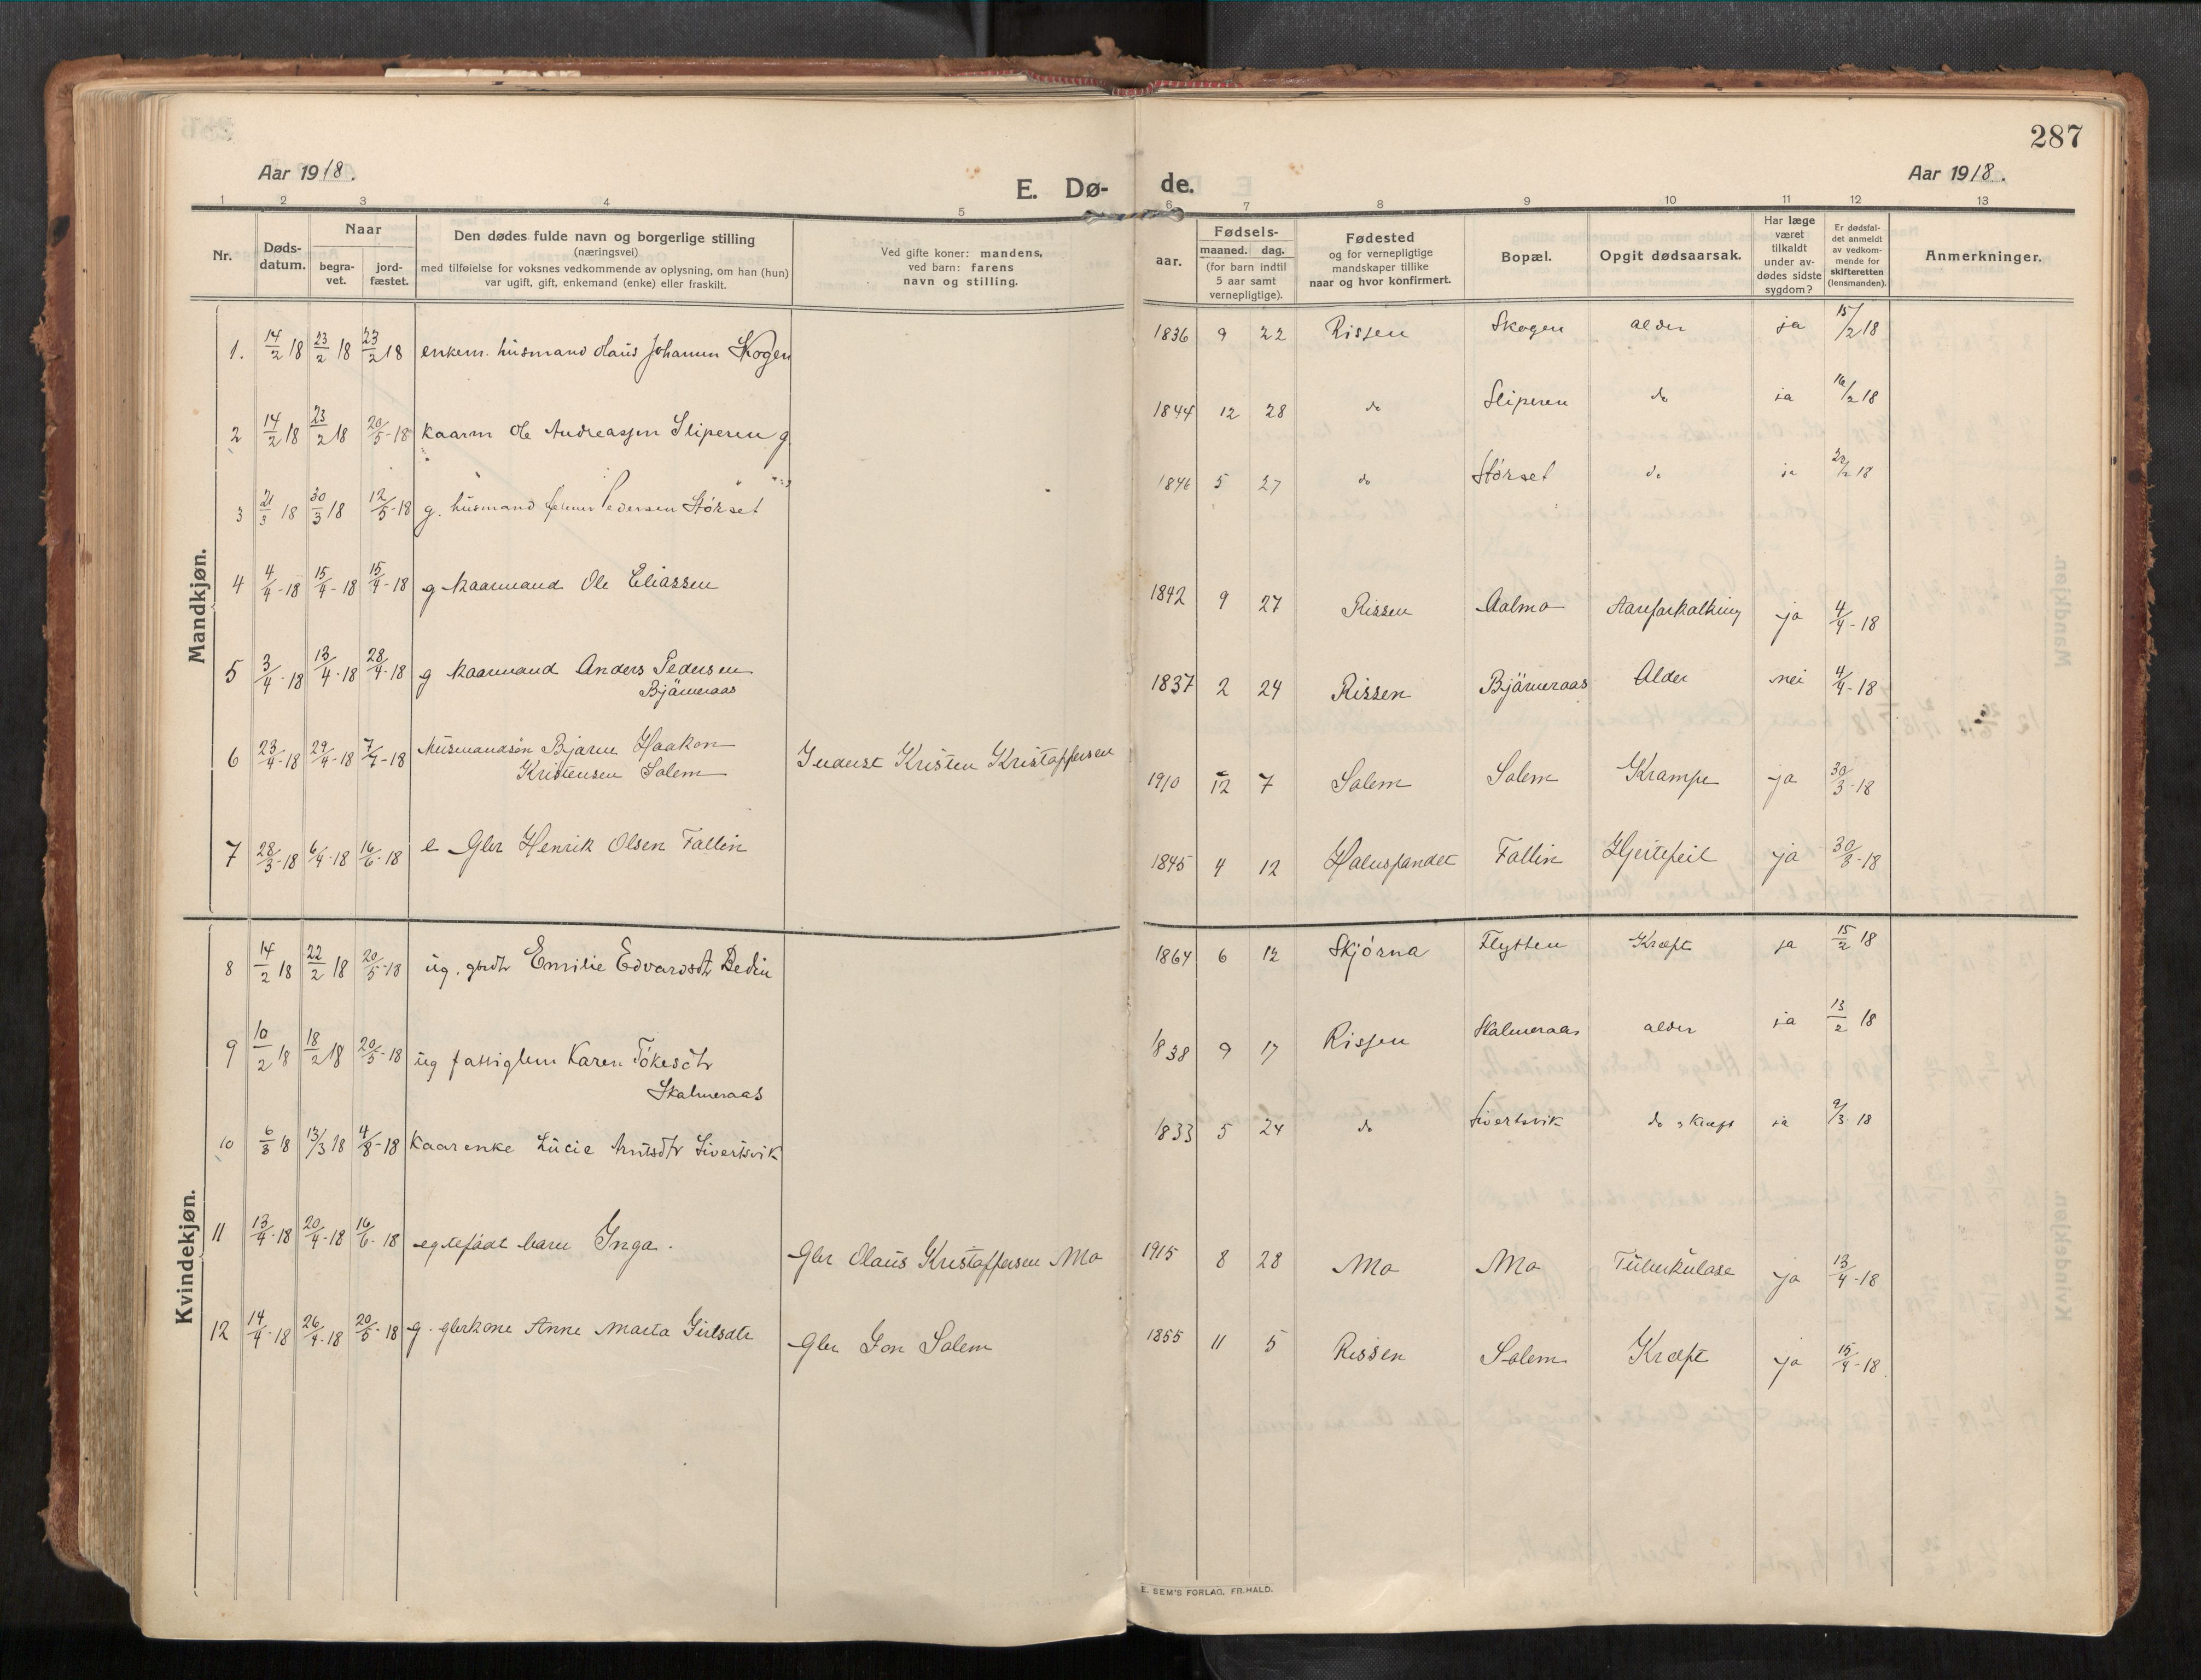 287
Aar 1918.
E. Dø-
de.
Aar 1918.
1 2 3 4 5 6 7 8 9 10 11 12 13
Nr.
Døds-
datum.
Naar
begra-
vet.
jord-
fæstet.
Den dødes fulde navn og borgerlige stilling
(næringsvei)
med tilføielse for voksnes vedkommende av oplysning, om han (hun)
var ugift, gift, enkemand (enke) eller fraskilt.
Ved gifte koner: mandens,
ved barn: farens
navn og stilling.
Fødsels-
aar.
maaned. dag.
(for barn indtil
5 aar samt
vernepligtige).
Fødested
og for vernepligtige
mandskaper tillike
naar og hvor konfirmert.
Bopæl.
Opgit dødsaarsak.
Har læge
været
tilkaldt
under av-
dødes sidste
sygdom?
Er dødsfal-
det anmeldt
av vedkom-
mende for
skifteretten
(lensmanden).
Anmerkninger.
Mandkjøn.
1. 14/2 18 23/2 18 23/2 18 enkem. husmand Olaus Johannes Skogen 1836 9 22 Rissen Skogen alder ja 15/2 18
2 14/2 18 23/2 18 20/5-18 kaarm Ole Andreassen Sliperen g. 1844 12 28 do Sliperen do ja 16/2 18
3 21/3 18 30/3 18 12/5-18 g. husmand Pedersen Størset 1846 5 27 do Størset do ja 18
4 4/4-18 15/4-18 15/4-18 g kaarmand Ole Eliassen 1842 9 27 Rissen Aalmo Aareforkalkning ja 4/4-18
5 3/4-18 13/4-18 28/4-18 g kaarmand Anders Pedersen
Bjärneraas 1837 2 24 Rissen Bjärneraas Alder nei 4/4-18
6 23/4-18 29/4-18 7/7-18 Husmandsön Bjarne Haakon
Kristensen Solem Inderst Kristen Kristoffersen 1910 12 7 Solem Solem Krampe ja 30/3-18
7 28/3-18 6/4-18 16/6-18 e Gbr Henrik Olsen Fallin 1845 4 12 Fallin Hjertefeil ja 30/3-18
Kvindekjøn.
8 14/2 18 22/2 18 20/5-18 ug. gbrdtr Emilie Edvardsdtr Dedin 1864 6 12 Skjørna Flytten Kræft ja 15/2 18
9 10/2 18 18/2 18 20/5-18 ug fattiglem Karen Tøkesdtr
Skalmeraas 1838 9 17 Rissen Skalmeraas alder ja 13/2 18
10 6/3 18 13/3 18 4/8-18 Kaarenke Lucie Arntsdtr Sivertsvik 1833 5 24 do Sivertsvik do, kræft ja 9/3 18
11 13/4-18 20/4-18 16/6-18 egtefødt barn Inga. Gbr Olaus Kristoffersen Mo 1915 8 28 Mo Mo Tuberkulose ja 13/4-18
12 14/4-18 26/4-18 20/5-18 g. gbrkone Anne Marta Gutsdtr Gbr Jon Solem 1855 11 5 Rissen Solem Kræft ja 15/4-18
E. SEM'S FORLAG, FR.HALD.